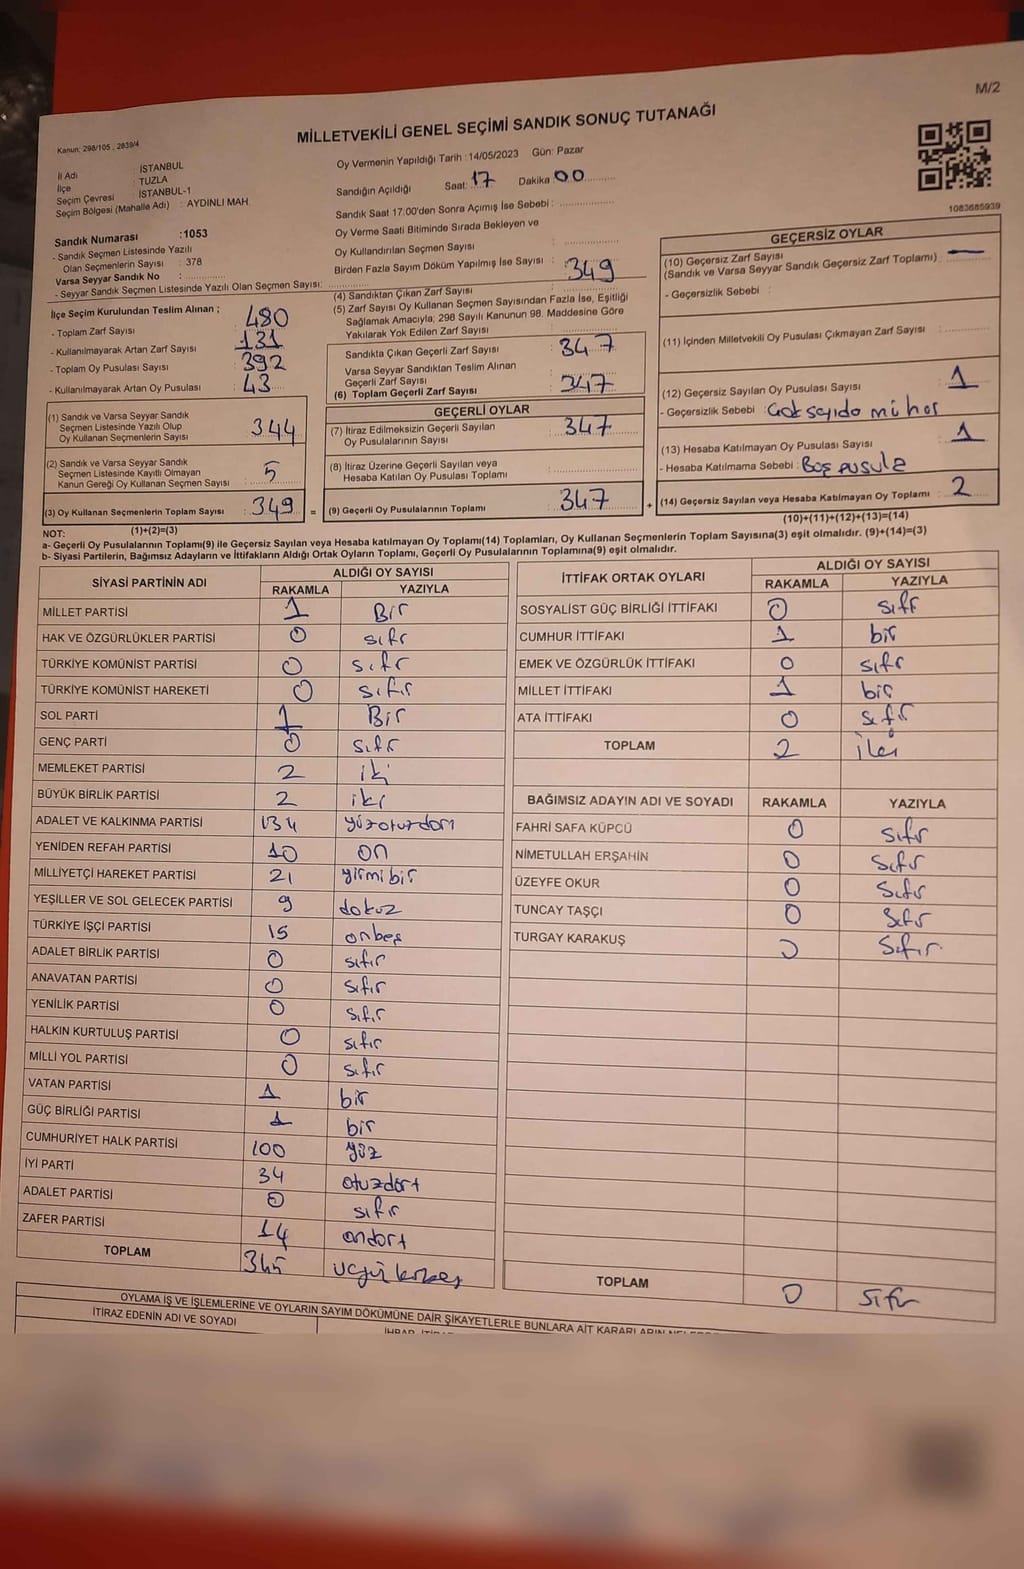 M/2
MİLLETVEKİLİ GENEL SEÇİMİ SANDIK SONUÇ TUTANAĞI
Kanun: 298/105 , 2839/4
İl Adı : İSTANBUL
İlçe : TUZLA
Seçim Çevresi : İSTANBUL-1
Seçim Bölgesi (Mahalle Adı) : AYDINLI MAH.
Sandık Numarası :1053
- Sandık Seçmen Listesinde Yazılı
Olan Seçmenlerin Sayısı : 378
Varsa Seyyar Sandık No :
- Seyyar Sandık Seçmen Listesinde Yazılı Olan Seçmen Sayısı:
Oy Vermenin Yapıldığı Tarih : 14/05/2023 Gün: Pazar
Sandığın Açıldığı Saat: 17 Dakika 00
Sandık Saat 17:00'den Sonra Açımış İse Sebebi :
Oy Verme Saati Bitiminde Sırada Bekleyen ve
Oy Kullandırılan Seçmen Sayısı :
Birden Fazla Sayım Döküm Yapılmış İse Sayısı :
1083685939
İlçe Seçim Kurulundan Teslim Alınan ;
- Toplam Zarf Sayısı : 480
- Kullanılmayarak Artan Zarf Sayısı : 131
- Toplam Oy Pusulası Sayısı : 392
- Kullanılmayarak Artan Oy Pusulası : 43
(1) Sandık ve Varsa Seyyar Sandık
Seçmen Listesinde Yazılı Olup
Oy Kullanan Seçmenlerin Sayısı : 344
(2) Sandık ve Varsa Seyyar Sandık
Seçmen Listesinde Kayıtlı Olmayan
Kanun Gereği Oy Kullanan Seçmen Sayısı : 5
(3) Oy Kullanan Seçmenlerin Toplam Sayısı : 349 =
(1)+(2)=(3)
(4) Sandıktan Çıkan Zarf Sayısı : 349
(5) Zarf Sayısı Oy Kullanan Seçmen Sayısından Fazla İse, Eşitliği
Sağlamak Amacıyla; 298 Sayılı Kanunun 98. Maddesine Göre
Yakılarak Yok Edilen Zarf Sayısı :
Sandıkta Çıkan Geçerli Zarf Sayısı : 347
Varsa Seyyar Sandıktan Teslim Alınan
Geçerli Zarf Sayısı :
(6) Toplam Geçerli Zarf Sayısı : 347
GEÇERLİ OYLAR
(7) İtiraz Edilmeksizin Geçerli Sayılan
Oy Pusulalarının Sayısı : 347
(8) İtiraz Üzerine Geçerli Sayılan veya
Hesaba Katılan Oy Pusulası Toplamı :
(9) Geçerli Oy Pusulalarının Toplamı : 347 +
GEÇERSİZ OYLAR
(10) Geçersiz Zarf Sayısı
(Sandık ve Varsa Seyyar Sandık Geçersiz Zarf Toplamı) : —
- Geçersizlik Sebebi :
(11) İçinden Milletvekili Oy Pusulası Çıkmayan Zarf Sayısı :
(12) Geçersiz Sayılan Oy Pusulası Sayısı : 1
- Geçersizlik Sebebi : çok sayıda mühür
(13) Hesaba Katılmayan Oy Pusulası Sayısı : 1
- Hesaba Katılmama Sebebi : Boş pusula
(14) Geçersiz Sayılan veya Hesaba Katılmayan Oy Toplamı : 2
(10)+(11)+(12)+(13)=(14)
NOT:
a- Geçerli Oy Pusulalarının Toplamı(9) ile Geçersiz Sayılan veya Hesaba katılmayan Oy Toplamı(14) Toplamları, Oy Kullanan Seçmenlerin Toplam Sayısına(3) eşit olmalıdır. (9)+(14)=(3)
b- Siyasi Partilerin, Bağımsız Adayların ve İttifakların Aldığı Ortak Oyların Toplamı, Geçerli Oy Pusulalarının Toplamına(9) eşit olmalıdır.
SİYASİ PARTİNİN ADI ALDIĞI OY SAYISI
RAKAMLA YAZIYLA
MİLLET PARTİSİ 1 Bir
HAK VE ÖZGÜRLÜKLER PARTİSİ 0 sıfr
TÜRKİYE KOMÜNİST PARTİSİ 0 sıfr
TÜRKİYE KOMÜNİST HAREKETİ 0 sıfır
SOL PARTİ 1 Bir
GENÇ PARTİ 0 sıfr
MEMLEKET PARTİSİ 2 iki
BÜYÜK BİRLİK PARTİSİ 2 iki
ADALET VE KALKINMA PARTİSİ 134 yüzotuzdört
YENİDEN REFAH PARTİSİ 10 on
MİLLİYETÇİ HAREKET PARTİSİ 21 yirmibir
YEŞİLLER VE SOL GELECEK PARTİSİ 9 dokuz
TÜRKİYE İŞÇİ PARTİSİ 15 onbeş
ADALET BİRLİK PARTİSİ 0 sıfır
ANAVATAN PARTİSİ 0 sıfır
YENİLİK PARTİSİ 0 sıfır
HALKIN KURTULUŞ PARTİSİ 0 sıfır
MİLLİ YOL PARTİSİ 0 sıfır
VATAN PARTİSİ 1 bir
GÜÇ BİRLİĞİ PARTİSİ 1 bir
CUMHURİYET HALK PARTİSİ 100 yüz
İYİ PARTİ 34 otuzdört
ADALET PARTİSİ 0 sıfır
ZAFER PARTİSİ 14 ondört
TOPLAM 345
İTTİFAK ORTAK OYLARI ALDIĞI OY SAYISI
RAKAMLA YAZIYLA
SOSYALİST GÜÇ BİRLİĞİ İTTİFAKI 0 sıfr
CUMHUR İTTİFAKI 1 bir
EMEK VE ÖZGÜRLÜK İTTİFAKI 0 sıfr
MİLLET İTTİFAKI 1 bir
ATA İTTİFAKI 0 sıfr
TOPLAM 2 iki
BAĞIMSIZ ADAYIN ADI VE SOYADI RAKAMLA YAZIYLA
FAHRİ SAFA KÜPCÜ 0 sıfr
NİMETULLAH ERŞAHİN 0 sıfr
ÜZEYFE OKUR 0 sıfr
TUNCAY TAŞÇI 0 sıfr
TURGAY KARAKUŞ 0 sıfır
TOPLAM 0 sıfır
OYLAMA İŞ VE İŞLEMLERİNE VE OYLARIN SAYIM DÖKÜMÜNE DAİR ŞİKAYETLERLE BUNLARA AİT KARARLARIN
İTİRAZ EDENİN ADI VE SOYADI